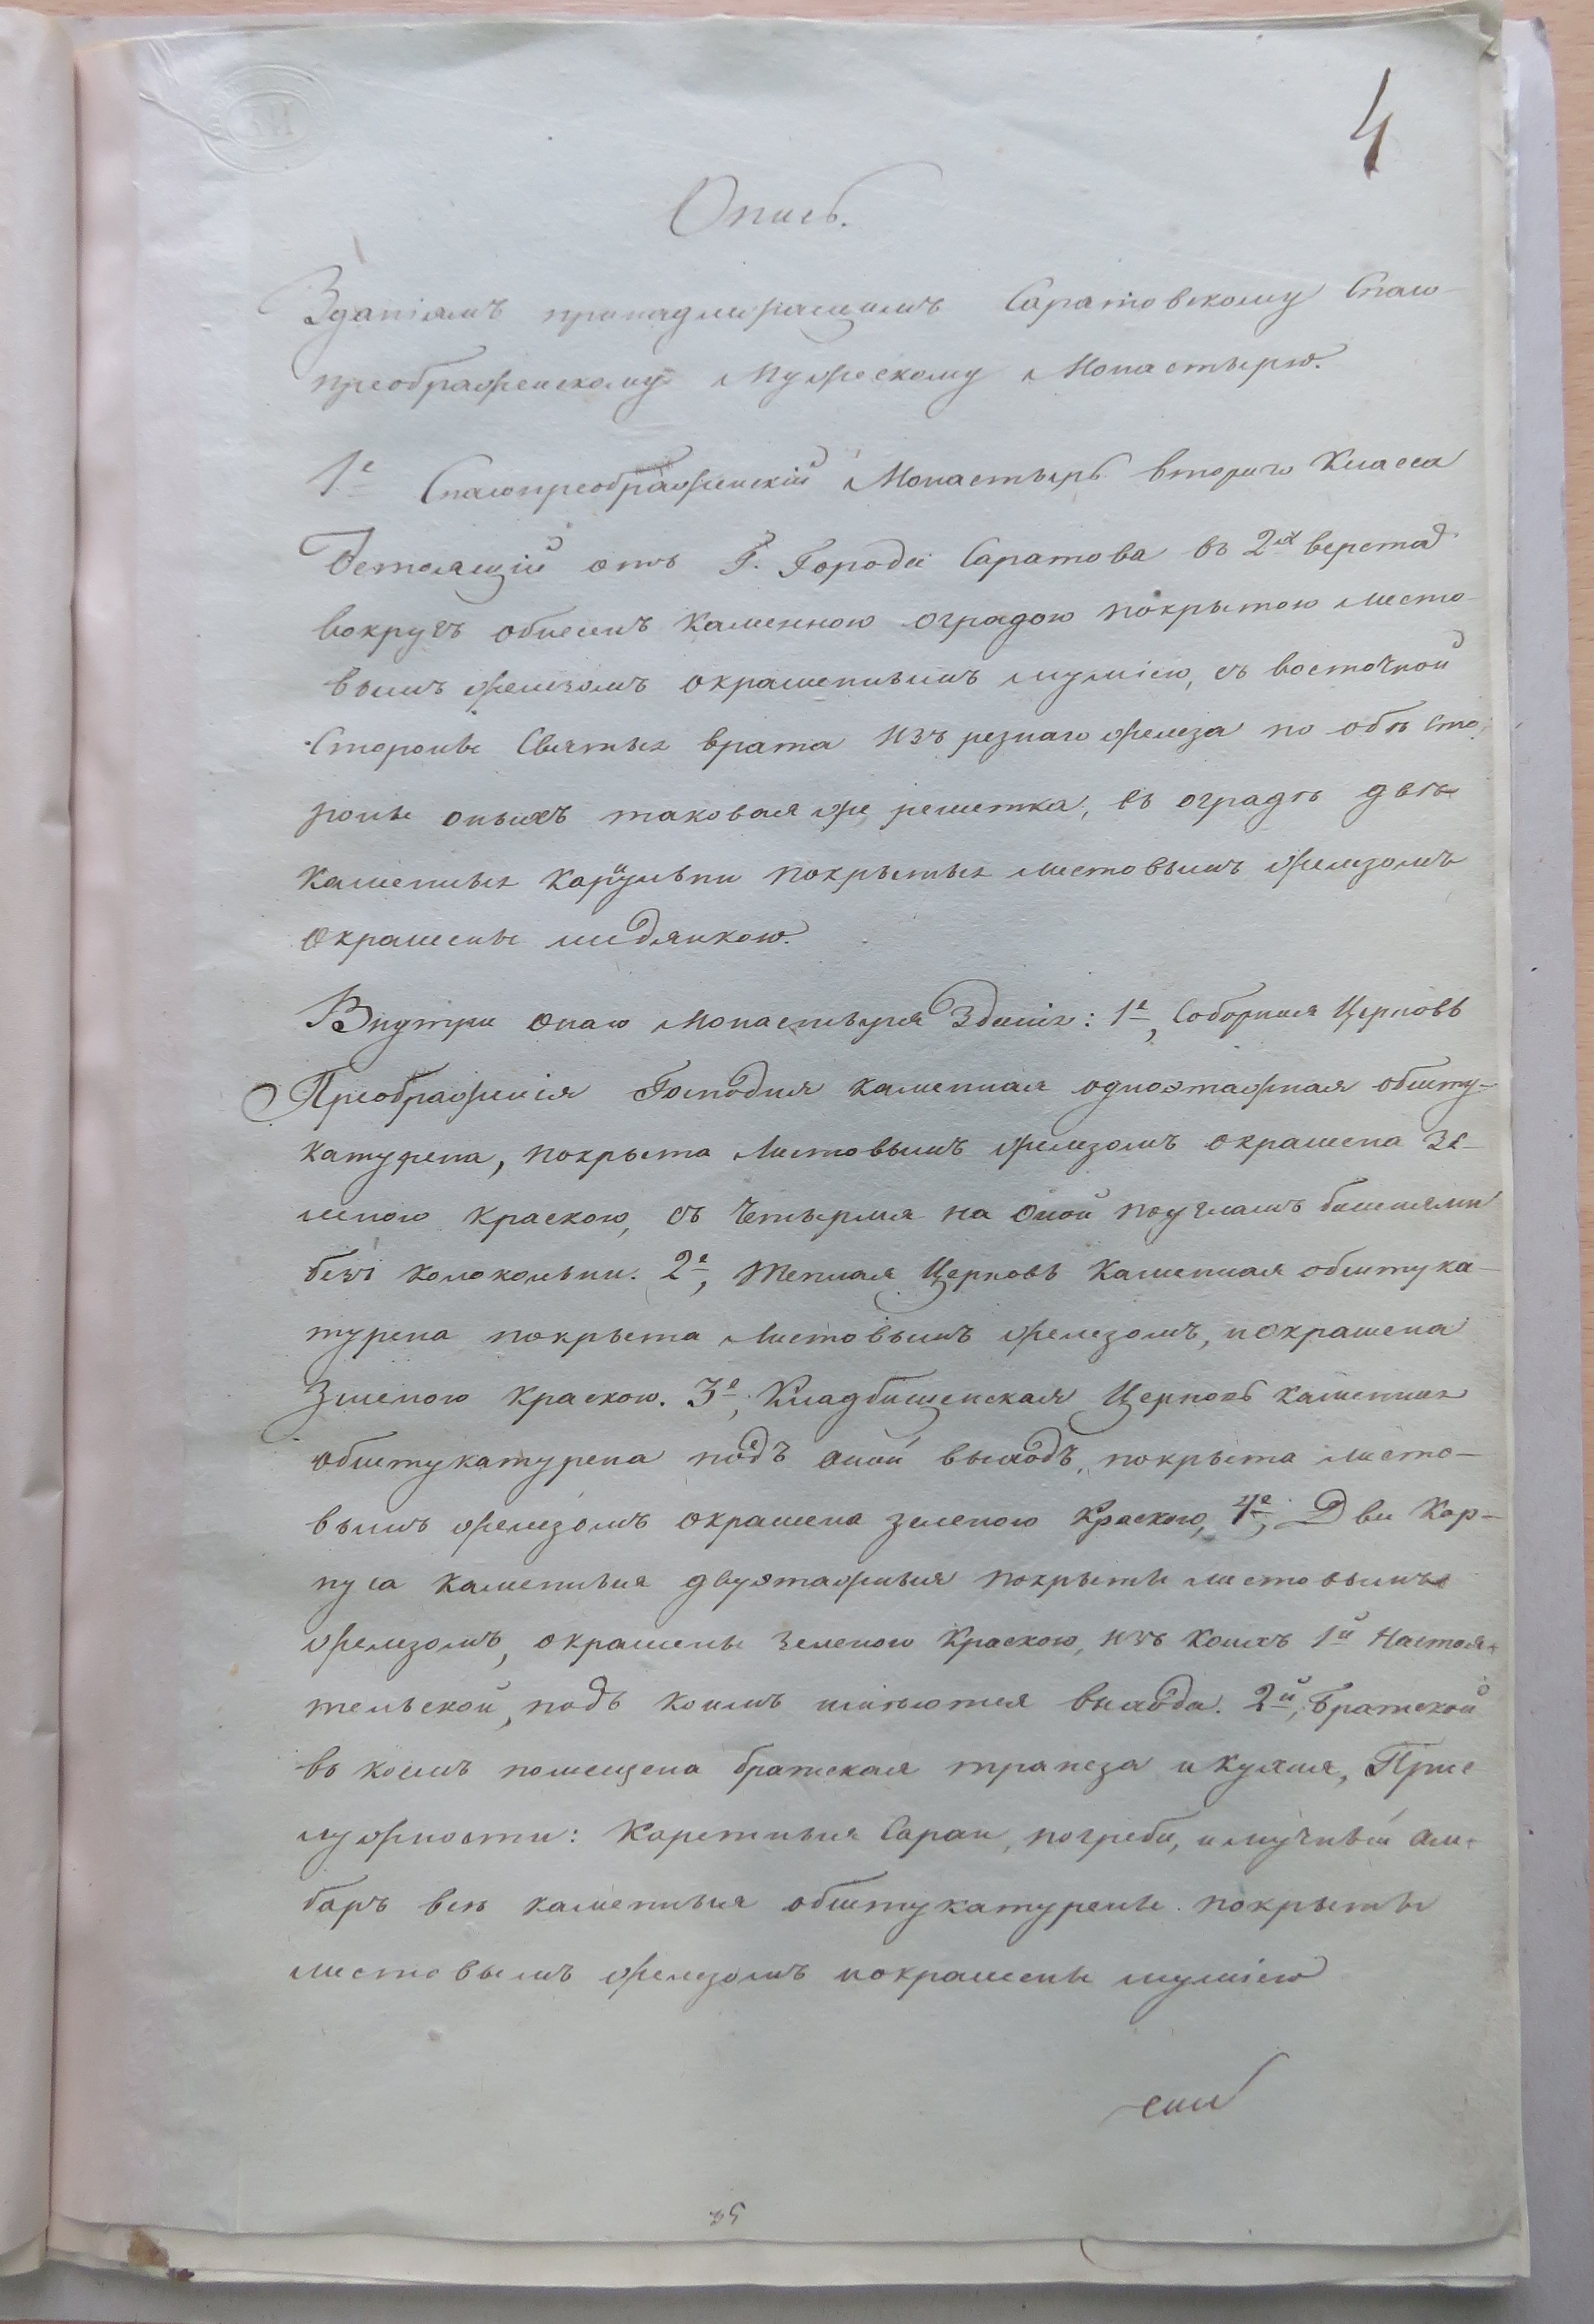 4
Опись.
Зданіямъ принадлежащимъ Саратовскому Спасо-
преображенскому Мужескому Монастырю.
1е Спасопреображенскій Монастырь втораго Класса
отстоящій отъ Г. Города Саратова въ 2хъ верстах
вокругъ обнесенъ каменною оградою покрытою листо-
вымъ железомъ окрашеннымъ муміею, съ восточной
Стороны Святыя врата изъ резнаго железа по обѣ сто-
роны оныхъ таковая же решетка, въ оградѣ двѣ
каменныя караульни покрытыя листовымъ железомъ
окрашены медянкою.
Внутри онаго монастыря Зданія: 1е, Соборная Церковь
Преображенія Господня каменная одноэтажная обшту-
катурена, покрыта Листовымъ железомъ окрашена зе-
леною краскою, съ четырмя на оной поугламъ башнями
безъ колокольни. 2е, теплая Церковь Каменная обштука-
турена покрыта Листовымъ железомъ, иокрашена
Зеленою краскою. 3е, Кладбищенская Церковь каменная
обштукатурена подъ оной выходъ, покрыта листо-
вымъ железомъ окрашена зеленою Краскою, 4е, Два Кор-
пуса каменныя двуэтажныя покрыты листовымъ
железомъ, окрашены Зеленою Краскою, изъ коихъ 1й Настоя-
тельской, подъ коимъ имѣются выхода. 2й, Братской
въ коемъ помещена братская трапеза икухня, При-
службности: Каретныя Сараи, погреба, имучный ам-
баръ всѣ каменныя обштукатурены покрыты
листовымъ железомъ иокрашены муміею